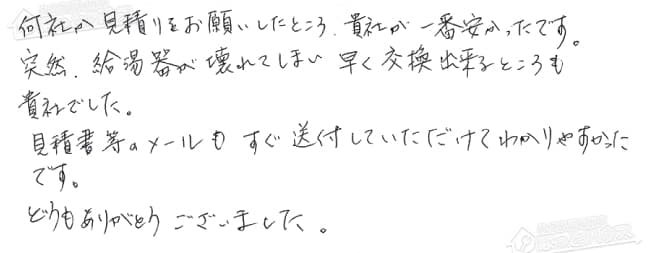 何社か見積りをお願いしたところ、貴社が一番安かったです。
突然、給湯器が壊れてしまい早く交換出来るところも
貴社でした。
見積書等のメールもすぐ送付していただけてわかりやすかった
です。
どうもありがとうございました。